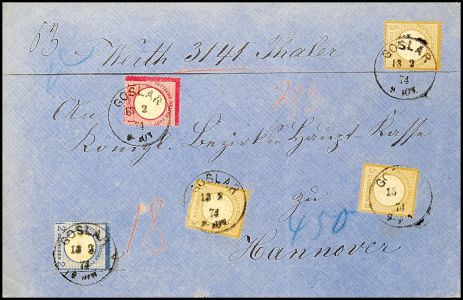 63
Werth 3141 Thaler
GOSLAR
13 2
74
9-10 V.
GOSLAR
2
74
An
Königl. Bezirks Haupt-Kasse
GOSLAR
13 2
74
GOSLAR
13
74
zu
18
450
GOSLAR
13 2
74
Hannover